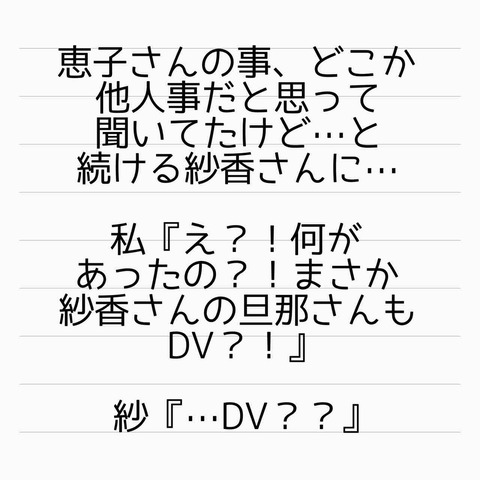 恵子さんの事、どこか
他人事だと思って
聞いてたけど…と
続ける紗香さんに…
私『え？！何が
あったの？！まさか
紗香さんの旦那さんも
DV？！』
紗『…DV？？』